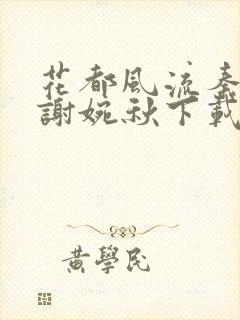 花都風流秦
謝婉秋下載
黃學民